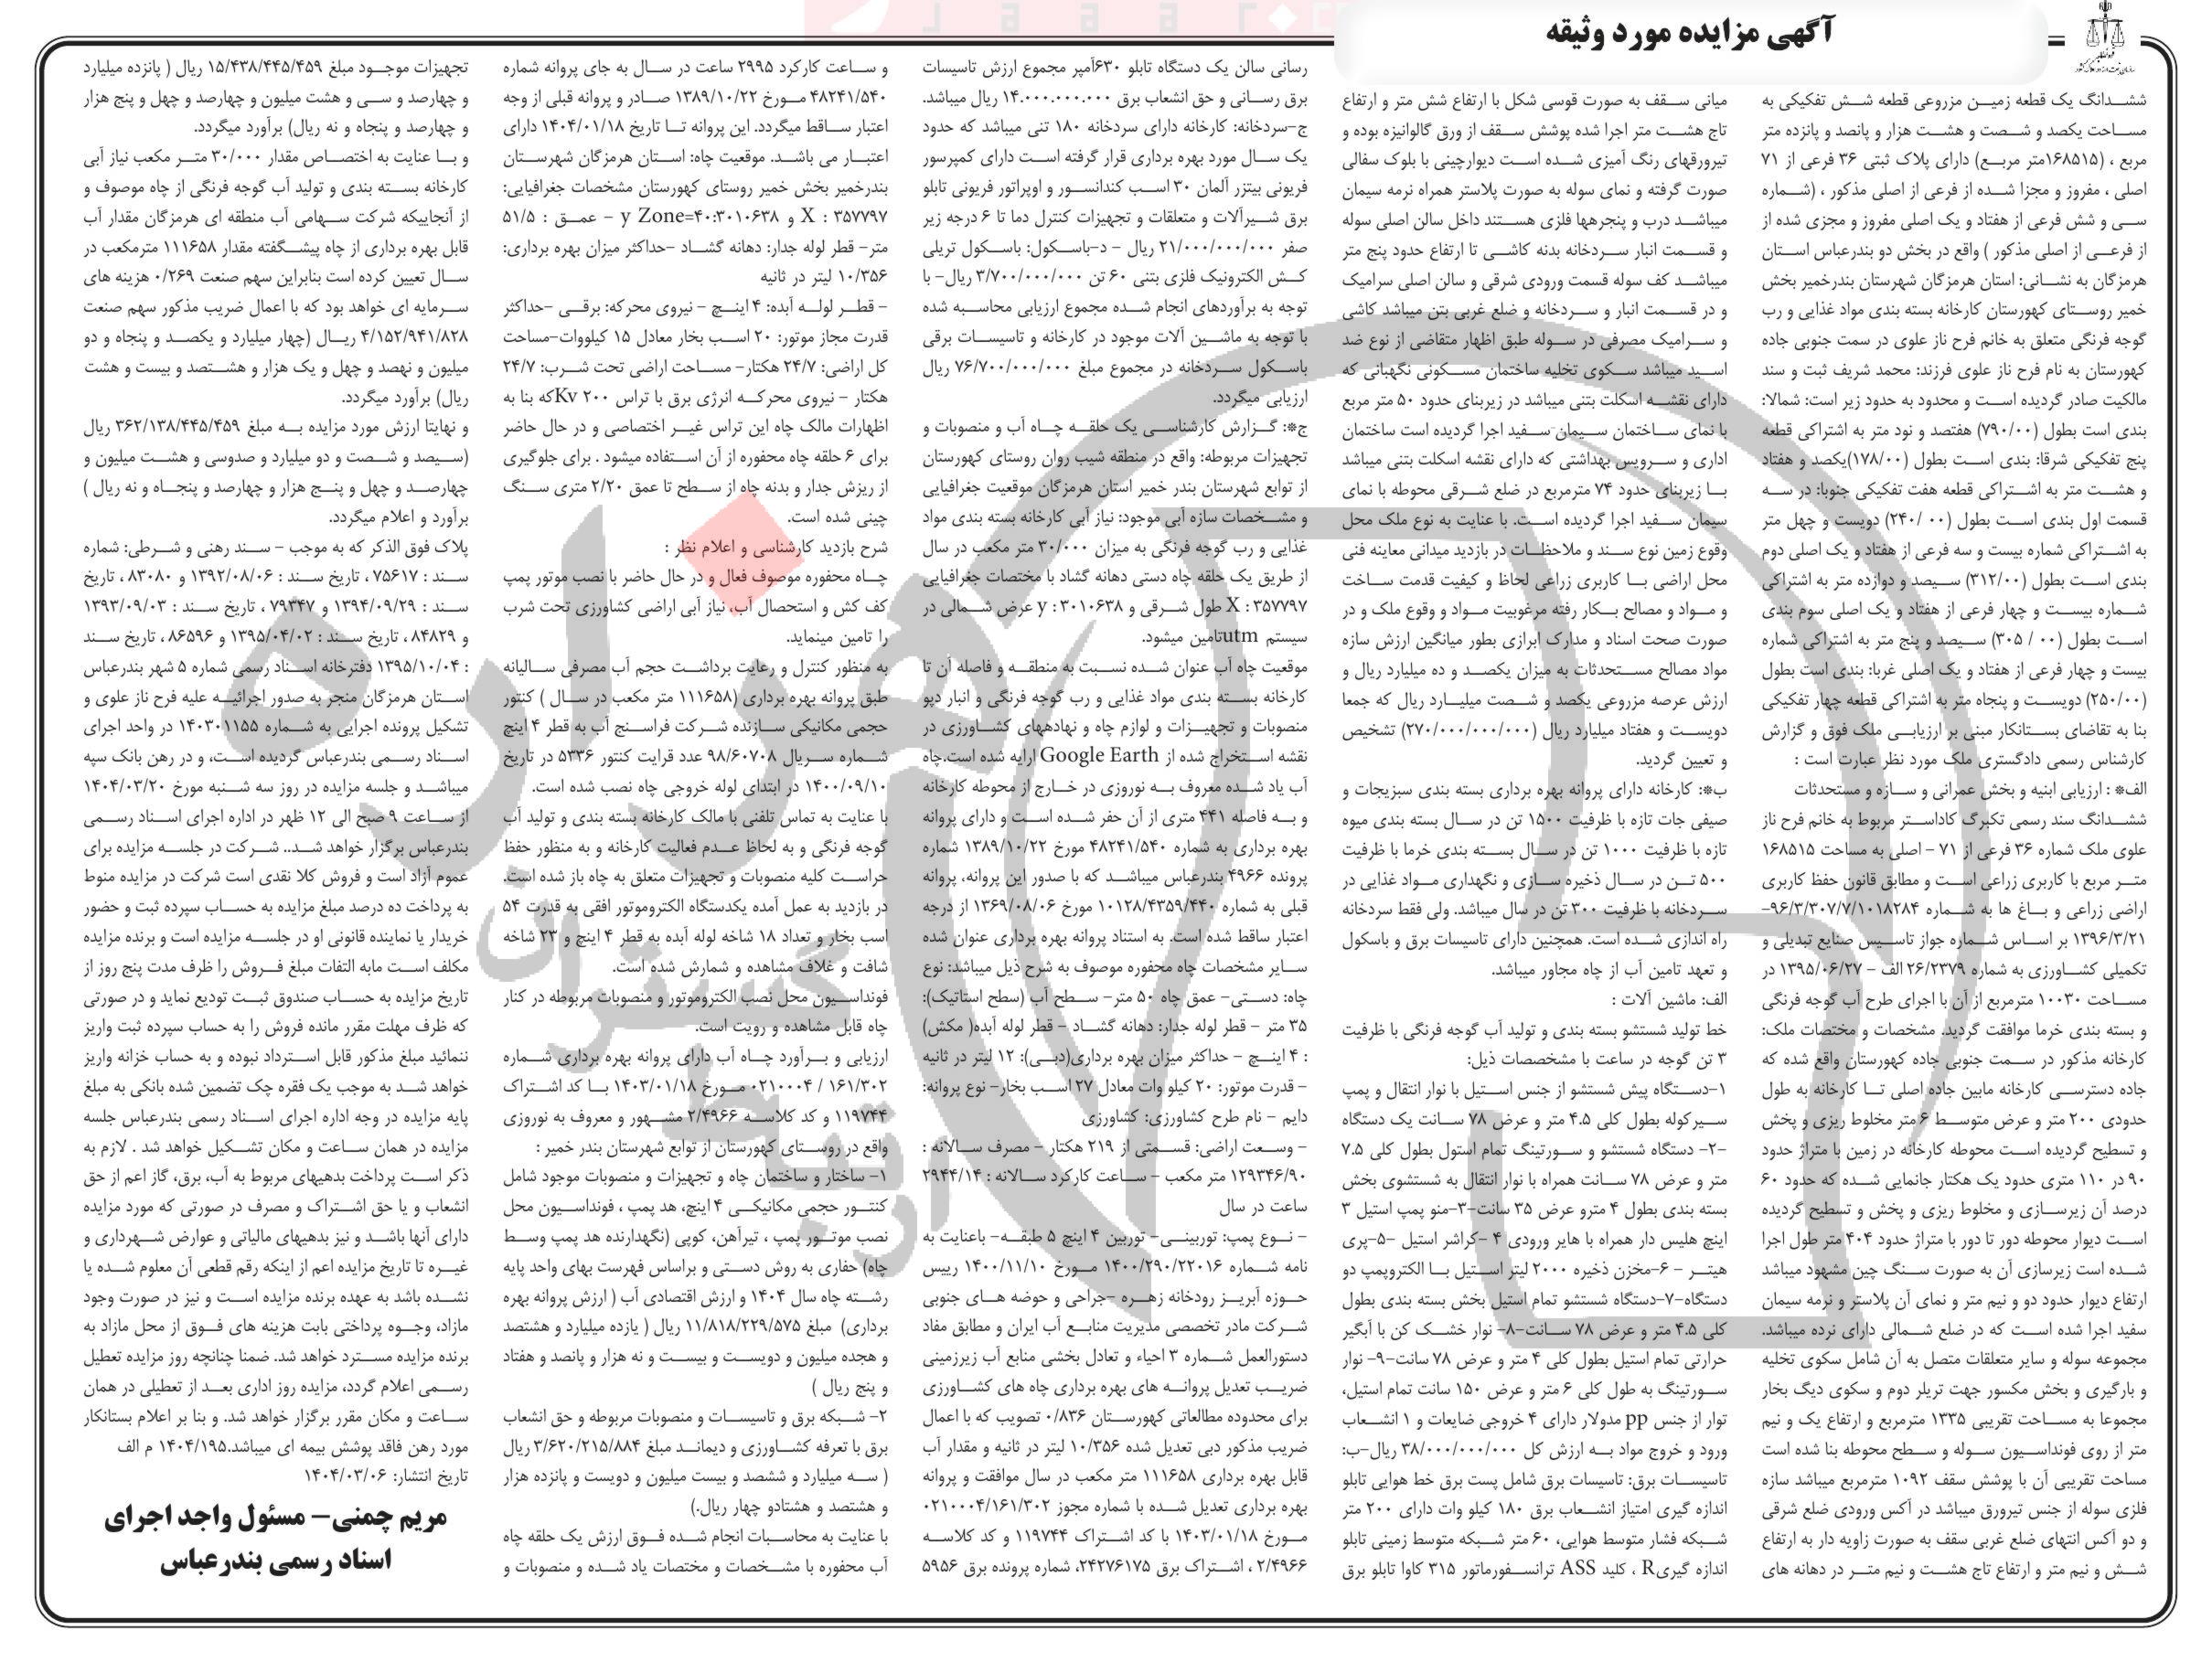 آگهی مزایده مورد وثیقه
ششدانگ یک قطعه زمین مزروعی قطعه شش تفکیکی به
مساحت یکصد و شصت و هشت هزار و پانصد و پانزده متر
مربع ، (۱۶۸۵۱۵متر مربع) دارای پلاک ثبتی ۳۶ فرعی از ۷۱
اصلی ، مفروز و مجزا شده از فرعی از اصلی مذکور ، (شماره
سی و شش فرعی از هفتاد و یک اصلی مفروز و مجزی شده از
از فرعی از اصلی مذکور ) واقع در بخش دو بندرعباس استان
هرمزگان به نشانی: استان هرمزگان شهرستان بندرخمیر بخش
خمیر روستای کهورستان کارخانه بسته بندی مواد غذایی و رب
گوجه فرنگی متعلق به خانم فرح ناز علوی در سمت جنوبی جاده
کهورستان به نام فرح ناز علوی فرزند: محمد شریف ثبت و سند
مالکیت صادر گردیده است و محدود به حدود زیر است: شمالا:
بندی است بطول (۷۹۰/۰۰) هفتصد و نود متر به اشتراکی قطعه
پنج تفکیکی شرقا: بندی است بطول (۱۷۸/۰۰)یکصد و هفتاد
و هشت متر به اشتراکی قطعه هفت تفکیکی جنوبا: در سه
قسمت اول بندی است بطول (۰۰ /۲۴۰) دویست و چهل متر
به اشتراکی شماره بیست و سه فرعی از هفتاد و یک اصلی دوم
بندی است بطول (۳۱۲/۰۰) سیصد و دوازده متر به اشتراکی
شماره بیست و چهار فرعی از هفتاد و یک اصلی سوم بندی
است بطول (۰۰ / ۳۰۵) سیصد و پنج متر به اشتراکی شماره
بیست و چهار فرعی از هفتاد و یک اصلی غربا: بندی است بطول
(۲۵۰/۰۰) دویست و پنجاه متر به اشتراکی قطعه چهار تفکیکی
بنا به تقاضای بستانکار مبنی بر ارزیابی ملک فوق و گزارش
کارشناس رسمی دادگستری ملک مورد نظر عبارت است :
الف* : ارزیابی ابنیه و بخش عمرانی و سازه و مستحدثات
ششدانگ سند رسمی تکبرگ کاداستر مربوط به خانم فرح ناز
علوی ملک شماره ۳۶ فرعی از ۷۱ - اصلی به مساحت ۱۶۸۵۱۵
متر مربع با کاربری زراعی است و مطابق قانون حفظ کاربری
اراضی زراعی و باغ ها به شماره ۹۶/۳/۳۰۷/۷/۱۰۱۸۲۸۴-
۱۳۹۶/۳/۲۱ بر اساس شماره جواز تاسیس صنایع تبدیلی و
تکمیلی کشاورزی به شماره ۲۶/۲۳۷۹ الف - ۱۳۹۵/۰۶/۲۷ در
مساحت ۱۰۰۳۰ مترمربع از آن با اجرای طرح آب گوجه فرنگی
و بسته بندی خرما موافقت گردید. مشخصات و مختصات ملک:
کارخانه مذکور در سمت جنوبی جاده کهورستان واقع شده که
جاده دسترسی کارخانه مابین جاده اصلی تا کارخانه به طول
حدودی ۲۰۰ متر و عرض متوسط ۶ متر مخلوط ریزی و پخش
و تسطیح گردیده است محوطه کارخانه در زمین با متراژ حدود
۹۰ در ۱۱۰ متری حدود یک هکتار جانمایی شده که حدود ۶۰
درصد آن زیرسازی و مخلوط ریزی و پخش و تسطیح گردیده
است دیوار محوطه دور تا دور با متراژ حدود ۴۰۴ متر طول اجرا
شده است زیرسازی آن به صورت سنگ چین مشهود میباشد
ارتفاع دیوار حدود دو و نیم متر و نمای آن پلاستر و نرمه سیمان
سفید اجرا شده است که در ضلع شمالی دارای نرده میباشد.
مجموعه سوله و سایر متعلقات متصل به آن شامل سکوی تخلیه
و بارگیری و بخش مکسور جهت تریلر دوم و سکوی دیگ بخار
مجموعا به مساحت تقریبی ۱۳۳۵ مترمربع و ارتفاع یک و نیم
متر از روی فونداسیون سوله و سطح محوطه بنا شده است
مساحت تقریبی آن با پوشش سقف ۱۰۹۲ مترمربع میباشد سازه
فلزی سوله از جنس تیرورق میباشد در آکس ورودی ضلع شرقی
و دو آکس انتهای ضلع غربی سقف به صورت زاویه دار به ارتفاع
شش و نیم متر و ارتفاع تاج هشت و نیم متر در دهانه های
میانی سقف به صورت قوسی شکل با ارتفاع شش متر و ارتفاع
تاج هشت متر اجرا شده پوشش سقف از ورق گالوانیزه بوده و
تیرورقهای رنگ آمیزی شده است دیوارچینی با بلوک سفالی
صورت گرفته و نمای سوله به صورت پلاستر همراه نرمه سیمان
میباشد درب و پنجرهها فلزی هستند داخل سالن اصلی سوله
و قسمت انبار سردخانه بدنه کاشی تا ارتفاع حدود پنج متر
میباشد کف سوله قسمت ورودی شرقی و سالن اصلی سرامیک
و در قسمت انبار و سردخانه و ضلع غربی بتن میباشد کاشی
و سرامیک مصرفی در سوله طبق اظهار متقاضی از نوع ضد
اسید میباشد سکوی تخلیه ساختمان مسکونی نگهبانی که
دارای نقشه اسکلت بتنی میباشد در زیربنای حدود ۵۰ متر مربع
با نمای ساختمان سیمان سفید اجرا گردیده است ساختمان
اداری و سرویس بهداشتی که دارای نقشه اسکلت بتنی میباشد
با زیربنای حدود ۷۴ مترمربع در ضلع شرقی محوطه با نمای
سیمان سفید اجرا گردیده است. با عنایت به نوع ملک محل
وقوع زمین نوع سند و ملاحظات در بازدید میدانی معاینه فنی
محل اراضی با کاربری زراعی لحاظ و کیفیت قدمت ساخت
و مواد و مصالح بکار رفته مرغوبیت مواد و وقوع ملک و در
صورت صحت اسناد و مدارک ابرازی بطور میانگین ارزش سازه
مواد مصالح مستحدثات به میزان یکصد و ده میلیارد ریال و
ارزش عرصه مزروعی یکصد و شصت میلیارد ریال که جمعا
دویست و هفتاد میلیارد ریال (۲۷۰/۰۰۰/۰۰۰/۰۰۰) تشخیص
و تعیین گردید.
ب*: کارخانه دارای پروانه بهره برداری بسته بندی سبزیجات و
صیفی جات تازه با ظرفیت ۱۵۰۰ تن در سال بسته بندی میوه
تازه با ظرفیت ۱۰۰۰ تن در سال بسته بندی خرما با ظرفیت
۵۰۰ تن در سال ذخیره سازی و نگهداری مواد غذایی در
سردخانه با ظرفیت ۳۰۰ تن در سال میباشد. ولی فقط سردخانه
راه اندازی شده است. همچنین دارای تاسیسات برق و باسکول
و تعهد تامین آب از چاه مجاور میباشد.
الف: ماشین آلات :
خط تولید شستشو بسته بندی و تولید آب گوجه فرنگی با ظرفیت
۳ تن گوجه در ساعت با مشخصصات ذیل:
۱-دستگاه پیش شستشو از جنس استیل با نوار انتقال و پمپ
سیرکوله بطول کلی ۴.۵ متر و عرض ۷۸ سانت یک دستگاه
-۲- دستگاه شستشو و سورتینگ تمام استول بطول کلی ۷.۵
متر و عرض ۷۸ سانت همراه با نوار انتقال به شستشوی بخش
بسته بندی بطول ۴ مترو عرض ۳۵ سانت-۳-منو پمپ استیل ۳
اینچ هلیس دار همراه با هایر ورودی ۴ -کراشر استیل -۵-پری
هیتر - ۶-مخزن ذخیره ۲۰۰۰ لیتر استیل با الکتروپمپ دو
دستگاه-۷-دستگاه شستشو تمام استیل بخش بسته بندی بطول
کلی ۴.۵ متر و عرض ۷۸ سانت-۸- نوار خشک کن با آبگیر
حرارتی تمام استیل بطول کلی ۴ متر و عرض ۷۸ سانت-۹- نوار
سورتینگ به طول کلی ۶ متر و عرض ۱۵۰ سانت تمام استیل،
توار از جنس pp مدولار دارای ۴ خروجی ضایعات و ۱ انشعاب
ورود و خروج مواد به ارزش کل ۳۸/۰۰۰/۰۰۰/۰۰۰ ریال-ب:
تاسیسات برق: تاسیسات برق شامل پست برق خط هوایی تابلو
اندازه گیری امتیاز انشعاب برق ۱۸۰ کیلو وات دارای ۲۰۰ متر
شبکه فشار متوسط هوایی، ۶۰ متر شبکه متوسط زمینی تابلو
اندازه گیریR ، کلید ASS ترانسفورماتور ۳۱۵ کاوا تابلو برق
رسانی سالن یک دستگاه تابلو ۶۳۰آمپر مجموع ارزش تاسیسات
برق رسانی و حق انشعاب برق ۱۴.۰۰۰.۰۰۰.۰۰۰ ریال میباشد.
ج-سردخانه: کارخانه دارای سردخانه ۱۸۰ تنی میباشد که حدود
یک سال مورد بهره برداری قرار گرفته است دارای کمپرسور
فریونی بیتزر آلمان ۳۰ اسب کندانسور و اوپراتور فریونی تابلو
برق شیرآلات و متعلقات و تجهیزات کنترل دما تا ۶ درجه زیر
صفر ۲۱/۰۰۰/۰۰۰/۰۰۰ ریال - د-باسکول: باسکول تریلی
کش الکترونیک فلزی بتنی ۶۰ تن ۳/۷۰۰/۰۰۰/۰۰۰ ریال- با
توجه به برآوردهای انجام شده مجموع ارزیابی محاسبه شده
با توجه به ماشین آلات موجود در کارخانه و تاسیسات برقی
باسکول سردخانه در مجموع مبلغ ۷۶/۷۰۰/۰۰۰/۰۰۰ ریال
ارزیابی میگردد.
ج*: گزارش کارشناسی یک حلقه چاه آب و منصوبات و
تجهیزات مربوطه: واقع در منطقه شیب روان روستای کهورستان
از توابع شهرستان بندر خمیر استان هرمزگان موقعیت جغرافیایی
و مشخصات سازه آبی موجود: نیاز آبی کارخانه بسته بندی مواد
غذایی و رب گوجه فرنگی به میزان ۳۰/۰۰۰ متر مکعب در سال
از طریق یک حلقه چاه دستی دهانه گشاد با مختصات جغرافیایی
X : ۳۵۷۷۹۷ طول شرقی و y : ۳۰۱۰۶۳۸ عرض شمالی در
سیستم utmتامین میشود.
موقعیت چاه آب عنوان شده نسبت به منطقه و فاصله آن تا
کارخانه بسته بندی مواد غذایی و رب گوجه فرنگی و انبار دپو
منصوبات و تجهیزات و لوازم چاه و نهادههای کشاورزی در
نقشه استخراج شده از Google Earth ارایه شده است.چاه
آب یاد شده معروف به نوروزی در خارج از محوطه کارخانه
و به فاصله ۴۴۱ متری از آن حفر شده است و دارای پروانه
بهره برداری به شماره ۴۸۲۴۱/۵۴۰ مورخ ۱۳۸۹/۱۰/۲۲ شماره
پرونده ۴۹۶۶ بندرعباس میباشد که با صدور این پروانه، پروانه
قبلی به شماره ۱۰۱۲۸/۴۳۵۹/۴۴۰ مورخ ۱۳۶۹/۰۸/۰۶ از درجه
اعتبار ساقط شده است. به استناد پروانه بهره برداری عنوان شده
سایر مشخصات چاه محفوره موصوف به شرح ذیل میباشد: نوع
چاه: دستی- عمق چاه ۵۰ متر- سطح آب (سطح استاتیک):
۳۵ متر - قطر لوله جدار: دهانه گشاد - قطر لوله آبده( مکش)
: ۴ اینچ - حداکثر میزان بهره برداری(دبی): ۱۲ لیتر در ثانیه
- قدرت موتور: ۲۰ کیلو وات معادل ۲۷ اسب بخار- نوع پروانه:
دایم - نام طرح کشاورزی: کشاورزی
- وسعت اراضی: قسمتی از ۲۱۹ هکتار - مصرف سالانه :
۱۲۹۳۴۶/۹۰ متر مکعب - ساعت کارکرد سالانه : ۲۹۴۴/۱۴
ساعت در سال
- نوع پمپ: توربینی- توربین ۴ اینچ ۵ طبقه- باعنایت به
نامه شماره ۱۴۰۰/۲۹۰/۲۲۰۱۶ مورخ ۱۴۰۰/۱۱/۱۰ رییس
حوزه آبریز رودخانه زهره -جراحی و حوضه های جنوبی
شرکت مادر تخصصی مدیریت منابع آب ایران و مطابق مفاد
دستورالعمل شماره ۳ احیاء و تعادل بخشی منابع آب زیرزمینی
ضریب تعدیل پروانه های بهره برداری چاه های کشاورزی
برای محدوده مطالعاتی کهورستان ۰/۸۳۶ تصویب که با اعمال
ضریب مذکور دبی تعدیل شده ۱۰/۳۵۶ لیتر در ثانیه و مقدار آب
قابل بهره برداری ۱۱۱۶۵۸ متر مکعب در سال موافقت و پروانه
بهره برداری تعدیل شده با شماره مجوز ۰۲۱۰۰۰۴/۱۶۱/۳۰۲
مورخ ۱۴۰۳/۰۱/۱۸ با کد اشتراک ۱۱۹۷۴۴ و کد کلاسه
۲/۴۹۶۶ ، اشتراک برق ۲۴۲۷۶۱۷۵، شماره پرونده برق ۵۹۵۶
و ساعت کارکرد ۲۹۹۵ ساعت در سال به جای پروانه شماره
۴۸۲۴۱/۵۴۰ مورخ ۱۳۸۹/۱۰/۲۲ صادر و پروانه قبلی از وجه
اعتبار ساقط میگردد. این پروانه تا تاریخ ۱۴۰۴/۰۱/۱۸ دارای
اعتبار می باشد. موقعیت چاه: استان هرمزگان شهرستان
بندرخمیر بخش خمیر روستای کهورستان مشخصات جغرافیایی:
X : ۳۵۷۷۹۷ و y Zone=۴۰:۳۰۱۰۶۳۸ - عمق : ۵۱/۵
متر- قطر لوله جدار: دهانه گشاد -حداکثر میزان بهره برداری:
۱۰/۳۵۶ لیتر در ثانیه
- قطر لوله آبده: ۴ اینچ - نیروی محرکه: برقی -حداکثر
قدرت مجاز موتور: ۲۰ اسب بخار معادل ۱۵ کیلووات-مساحت
کل اراضی: ۲۴/۷ هکتار- مساحت اراضی تحت شرب: ۲۴/۷
هکتار - نیروی محرکه انرژی برق با تراس ۲۰۰ Kvکه بنا به
اظهارات مالک چاه این تراس غیر اختصاصی و در حال حاضر
برای ۶ حلقه چاه محفوره از آن استفاده میشود . برای جلوگیری
از ریزش جدار و بدنه چاه از سطح تا عمق ۲/۲۰ متری سنگ
چینی شده است.
شرح بازدید کارشناسی و اعلام نظر :
چاه محفوره موصوف فعال و در حال حاضر با نصب موتور پمپ
کف کش و استحصال آب، نیاز آبی اراضی کشاورزی تحت شرب
را تامین مینماید.
به منظور کنترل و رعایت برداشت حجم آب مصرفی سالیانه
طبق پروانه بهره برداری (۱۱۱۶۵۸ متر مکعب در سال ) کنتور
حجمی مکانیکی سازنده شرکت فراسنج آب به قطر ۴ اینچ
شماره سریال ۹۸/۶۰۷۰۸ عدد قرایت کنتور ۵۳۳۶ در تاریخ
۱۴۰۰/۰۹/۱۰ در ابتدای لوله خروجی چاه نصب شده است.
با عنایت به تماس تلفنی با مالک کارخانه بسته بندی و تولید آب
گوجه فرنگی و به لحاظ عدم فعالیت کارخانه و به منظور حفظ
حراست کلیه منصوبات و تجهیزات متعلق به چاه باز شده است.
در بازدید به عمل آمده یکدستگاه الکتروموتور افقی به قدرت ۵۴
اسب بخار و تعداد ۱۸ شاخه لوله آبده به قطر ۴ اینچ و ۲۳ شاخه
شافت و غلاف مشاهده و شمارش شده است.
فونداسیون محل نصب الکتروموتور و منصوبات مربوطه در کنار
چاه قابل مشاهده و رویت است.
ارزیابی و برآورد چاه آب دارای پروانه بهره برداری شماره
۱۶۱/۳۰۲ / ۰۲۱۰۰۰۴ مورخ ۱۴۰۳/۰۱/۱۸ با کد اشتراک
۱۱۹۷۴۴ و کد کلاسه ۲/۴۹۶۶ مشهور و معروف به نوروزی
واقع در روستای کهورستان از توابع شهرستان بندر خمیر :
۱- ساختار و ساختمان چاه و تجهیزات و منصوبات موجود شامل
کنتور حجمی مکانیکی ۴ اینچ، هد پمپ ، فونداسیون محل
نصب موتور پمپ ، تیرآهن، کوپی (نگهدارنده هد پمپ وسط
چاه) حفاری به روش دستی و براساس فهرست بهای واحد پایه
رشته چاه سال ۱۴۰۴ و ارزش اقتصادی آب ( ارزش پروانه بهره
برداری) مبلغ ۱۱/۸۱۸/۲۲۹/۵۷۵ ریال ( یازده میلیارد و هشتصد
و هجده میلیون و دویست و بیست و نه هزار و پانصد و هفتاد
و پنج ریال )
۲- شبکه برق و تاسیسات و منصوبات مربوطه و حق انشعاب
برق با تعرفه کشاورزی و دیماند مبلغ ۳/۶۲۰/۲۱۵/۸۸۴ ریال
( سه میلیارد و ششصد و بیست میلیون و دویست و پانزده هزار
و هشتصد و هشتادو چهار ریال.)
با عنایت به محاسبات انجام شده فوق ارزش یک حلقه چاه
آب محفوره با مشخصات و مختصات یاد شده و منصوبات و
تجهیزات موجود مبلغ ۱۵/۴۳۸/۴۴۵/۴۵۹ ریال ( پانزده میلیارد
و چهارصد و سی و هشت میلیون و چهارصد و چهل و پنج هزار
و چهارصد و پنجاه و نه ریال) برآورد میگردد.
و با عنایت به اختصاص مقدار ۳۰/۰۰۰ متر مکعب نیاز آبی
کارخانه بسته بندی و تولید آب گوجه فرنگی از چاه موصوف و
از آنجاییکه شرکت سهامی آب منطقه ای هرمزگان مقدار آب
قابل بهره برداری از چاه پیشگفته مقدار ۱۱۱۶۵۸ مترمکعب در
سال تعیین کرده است بنابراین سهم صنعت ۰/۲۶۹ هزینه های
سرمایه ای خواهد بود که با اعمال ضریب مذکور سهم صنعت
۴/۱۵۲/۹۴۱/۸۲۸ ریال (چهار میلیارد و یکصد و پنجاه و دو
میلیون و نهصد و چهل و یک هزار و هشتصد و بیست و هشت
ریال) برآورد میگردد.
و نهایتا ارزش مورد مزایده به مبلغ ۳۶۲/۱۳۸/۴۴۵/۴۵۹ ریال
(سیصد و شصت و دو میلیارد و صدوسی و هشت میلیون و
چهارصد و چهل و پنج هزار و چهارصد و پنجاه و نه ریال )
برآورد و اعلام میگردد.
پلاک فوق الذکر که به موجب - سند رهنی و شرطی: شماره
سند : ۷۵۶۱۷ ، تاریخ سند : ۱۳۹۲/۰۸/۰۶ و ۸۳۰۸۰ ، تاریخ
سند : ۱۳۹۴/۰۹/۲۹ و ۷۹۳۴۷ ، تاریخ سند : ۱۳۹۳/۰۹/۰۳
و ۸۴۸۲۹ ، تاریخ سند : ۱۳۹۵/۰۴/۰۲ و ۸۶۵۹۶ ، تاریخ سند
: ۱۳۹۵/۱۰/۰۴ دفترخانه اسناد رسمی شماره ۵ شهر بندرعباس
استان هرمزگان منجر به صدور اجرائیه علیه فرح ناز علوی و
تشکیل پرونده اجرایی به شماره ۱۴۰۳۰۱۱۵۵ در واحد اجرای
اسناد رسمی بندرعباس گردیده است، و در رهن بانک سپه
میباشد و جلسه مزایده در روز سه شنبه مورخ ۱۴۰۴/۰۳/۲۰
از ساعت ۹ صبح الی ۱۲ ظهر در اداره اجرای اسناد رسمی
بندرعباس برگزار خواهد شد.. شرکت در جلسه مزایده برای
عموم آزاد است و فروش کلا نقدی است شرکت در مزایده منوط
به پرداخت ده درصد مبلغ مزایده به حساب سپرده ثبت و حضور
خریدار یا نماینده قانونی او در جلسه مزایده است و برنده مزایده
مکلف است مابه التفات مبلغ فروش را ظرف مدت پنج روز از
تاریخ مزایده به حساب صندوق ثبت تودیع نماید و در صورتی
که ظرف مهلت مقرر مانده فروش را به حساب سپرده ثبت واریز
ننمائید مبلغ مذکور قابل استرداد نبوده و به حساب خزانه واریز
خواهد شد به موجب یک فقره چک تضمین شده بانکی به مبلغ
پایه مزایده در وجه اداره اجرای اسناد رسمی بندرعباس جلسه
مزایده در همان ساعت و مکان تشکیل خواهد شد . لازم به
ذکر است پرداخت بدهیهای مربوط به آب، برق، گاز اعم از حق
انشعاب و یا حق اشتراک و مصرف در صورتی که مورد مزایده
دارای آنها باشد و نیز بدهیهای مالیاتی و عوارض شهرداری و
غیره تا تاریخ مزایده اعم از اینکه رقم قطعی آن معلوم شده یا
نشده باشد به عهده برنده مزایده است و نیز در صورت وجود
مازاد، وجوه پرداختی بابت هزینه های فوق از محل مازاد به
برنده مزایده مسترد خواهد شد. ضمنا چنانچه روز مزایده تعطیل
رسمی اعلام گردد، مزایده روز اداری بعد از تعطیلی در همان
ساعت و مکان مقرر برگزار خواهد شد. و بنا بر اعلام بستانکار
مورد رهن فاقد پوشش بیمه ای میباشد.۱۴۰۴/۱۹۵ م الف
تاریخ انتشار: ۱۴۰۴/۰۳/۰۶
مریم چمنی- مسئول واحد اجرای
اسناد رسمی بندرعباس